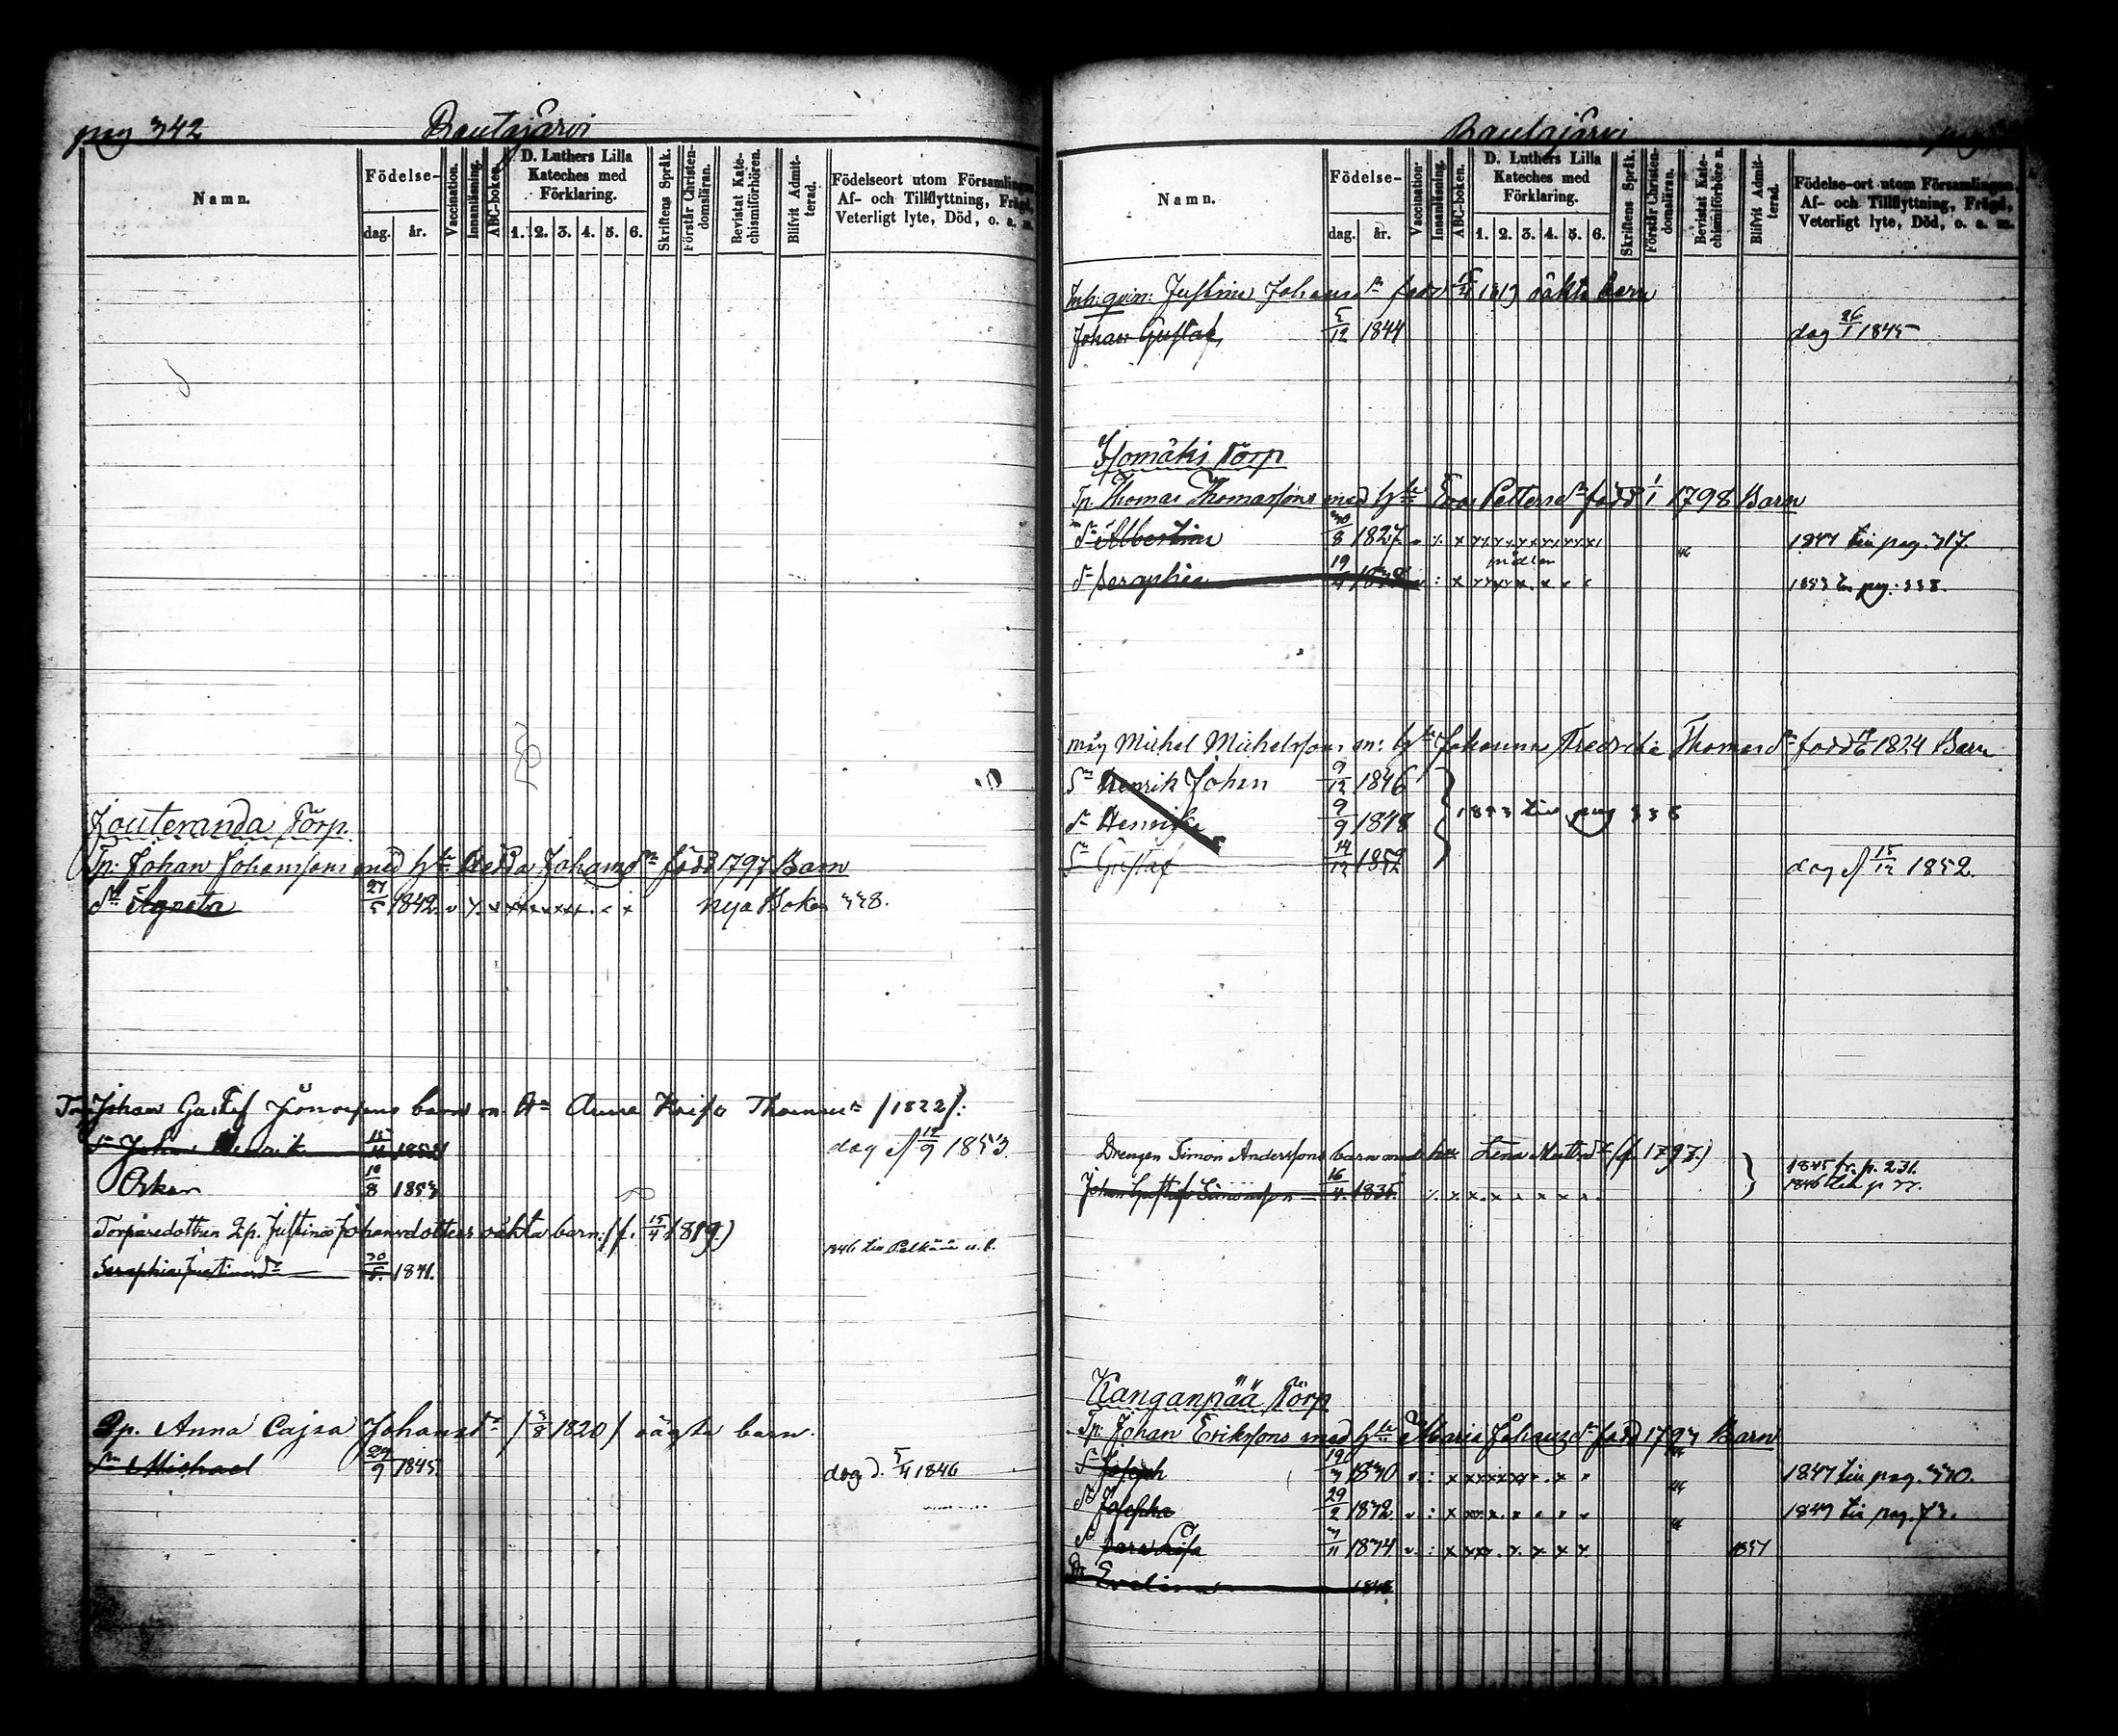 pag 342 Rautajärvi
Namn. Födelse- dag. år. Vaccination. Innanläsning. ABC-boken. D. Luthers Lilla Kateches med Förklaring. 1. 2. 3. 4. 5. 6. Skriftens Språk. Förstår Christendomsläran. Bevistat Kate-chismiförhören. Blifvit Admit-terad. Födelseort utom Församlingen, Af- och Tillflyttning, Frägd, Veterligt lyte, Död, o. a. m.
Kouteranda Torp.
Tp. Johan Johansson med h. Hedda Johansdr född 1797 Barn
Dr Agneta 27/5 1842 nya Boken 338.
Johan Gustaf barn m. Anna Thomasdr /1822/:
Sn Johan Henrik 15/11 1852 dog d 19/9 1853.
Oskar 10/8 1853
Torparedottren Qp. Justina Johansdotters oäkta barn: (f. 15/4 1819.)
Seraphia Justinasdr 30/5. 1841. 1846 till Pelkäne u. b.
Qp. Anna Cajsa Johansdr /3/8 1820/ oägta barn.
Sn Michael 29/9 1845. dog d. 5/4 1846
Rautajärvi
Namn. Födelse- dag. år. Vaccination. Innanläsning. ABC-boken. D. Luthers Lilla Kateches med Förklaring. 1. 2. 3. 4. 5. 6. Skriftens Språk. Förstår Christen-domsläran. Bevistat Kate-chismiförhören. Blifvit Admit-terad. Födelse-ort utom Församlingen, Af- och Tillflyttning, Frägd, Veterligt lyte, Död, o. a. m.
Inh: qvin: Justina Johansdr född 15/4 1819 oäkta barn
Johan Gustaf 5/12 1844 dog 26/1 1845
Isomäki Torp
Tp. Thomas Thomasson med h. Eva Pettersdr född 1/1 1798 Barn
Dr Albertina 30/8 1827 46 1847 till pag. 317.
Dr Seraphia 19/4 1853 till pag: 338.
måg Michel Michelsson m: h. Johanna Fredrika Thomasdr född 1824 Barn
Sn Henrik Johan 9/12 1846
Dr Henrika 9/9 1848 1853 till pag 336
Sn Gustaf 14/12 1852 dog d 15/12 1852.
Drengen Simon Anderssons barn med h. Lena Mattsdr (f. 1797.)
Johan Gustaf Simonsson 16/4. 1835. 1845 fr. p. 231. 1846 till p
Kanganpää Torp
Tp. Johan Eriksson med h. Maria Johansdr född 1793 Barn
Sn Joseph 19/3 1830 46 1847 till pag. 330.
Dr Josepha 29/2 1832 46 1849 till pag. 73.
Dr Sara Lisa 3/11 1834 46 1851
Dr Evelina